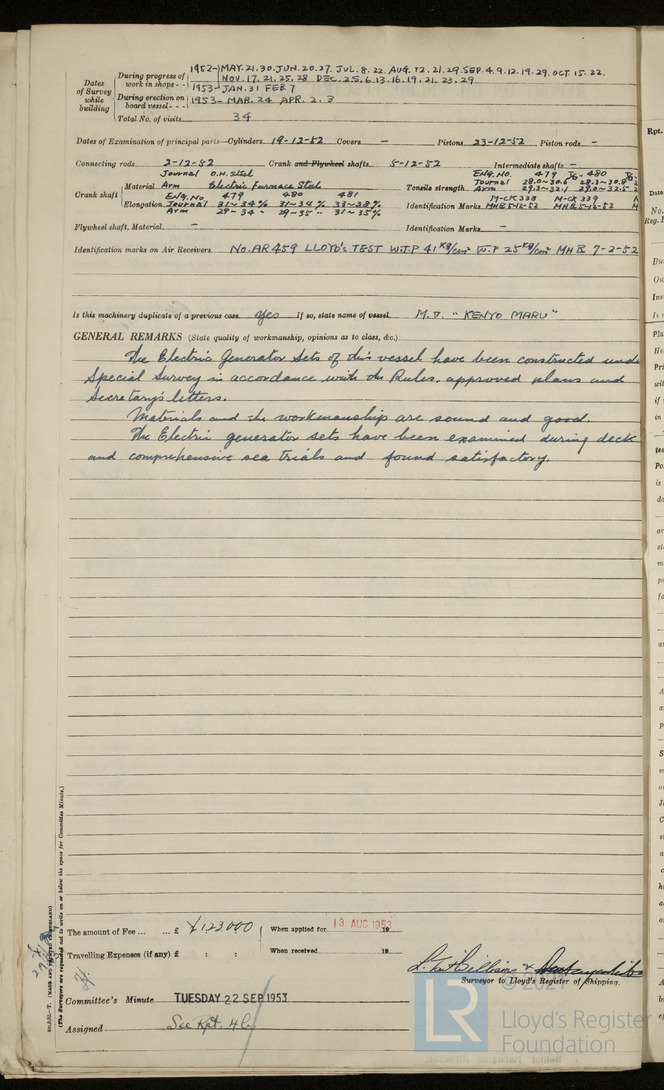 1952- MAY. 21. 30. JUN. 20. 27. JUL. 8. 22. AUG. 12. 21. 29. SEP. 4. 9. 12. 19. 29. OCT. 15. 22.
Dates of Survey while building
During progress of work in shops - -
NOV. 17. 21. 25. 28 DEC. 2. 5. 6. 13. 16. 19. 21. 23. 29.
1953- JAN. 31 FEB 7
During erection on board vessel - - -
1953- MAR. 24 APR. 2. 3
Total No. of visits 34
Dates of Examination of principal parts—Cylinders 19-12-52 Covers - Pistons 23-12-52 Piston rods -
Connecting rods 2-12-52 Crank and Flywheel shafts 5-12-52 Intermediate shafts -
Crank shaft
Material Journal O.H. Steel
Arm Electric Furnace Steel
Tensile strength
ENG. NO. 479 480
Journal 28.0~30.6 28.3~30.8
Arm 29.3~32.1 29.0~32.5
Elongation
ENG. NO 479 480 481
Journal 31~34% 31~34% 33~28%
Arm 29-34 " 29-35 " 31~35%
Identification Marks
M-CK 338 M-CK 339
MHB 5-12-52 MHB 5-12-52
Flywheel shaft, Material - Identification Marks -
Identification marks on Air Receivers No. AR 459 LLOYD'S TEST W.T.P 41 KG/cm² W.P 25 KG/cm² MHB 7-2-52
Is this machinery duplicate of a previous case yes If so, state name of vessel M.V. "KENYO MARU"
GENERAL REMARKS (State quality of workmanship, opinions as to class, &c.)
The Electric Generator Sets of this vessel have been constructed unde
Special Survey in accordance with the Rules, approved plans and
Secretary's letters.
Materials and the workmanship are sound and good.
The Electric generator sets have been examined during deck
and comprehensive sea trials and found satisfactory.
(The Surveyors are requested not to write on or below the space for Committee Minute.)
The amount of Fee ... ... £ ¥123,000 When applied for 13 AUG 1953 19
Travelling Expenses (if any) £ : : When received 19
Surveyor to Lloyd's Register of Shipping.
Committee's Minute TUESDAY 22 SEP 1953
Assigned See Rpt. 4b.
LR
Lloyd's Register
Foundation